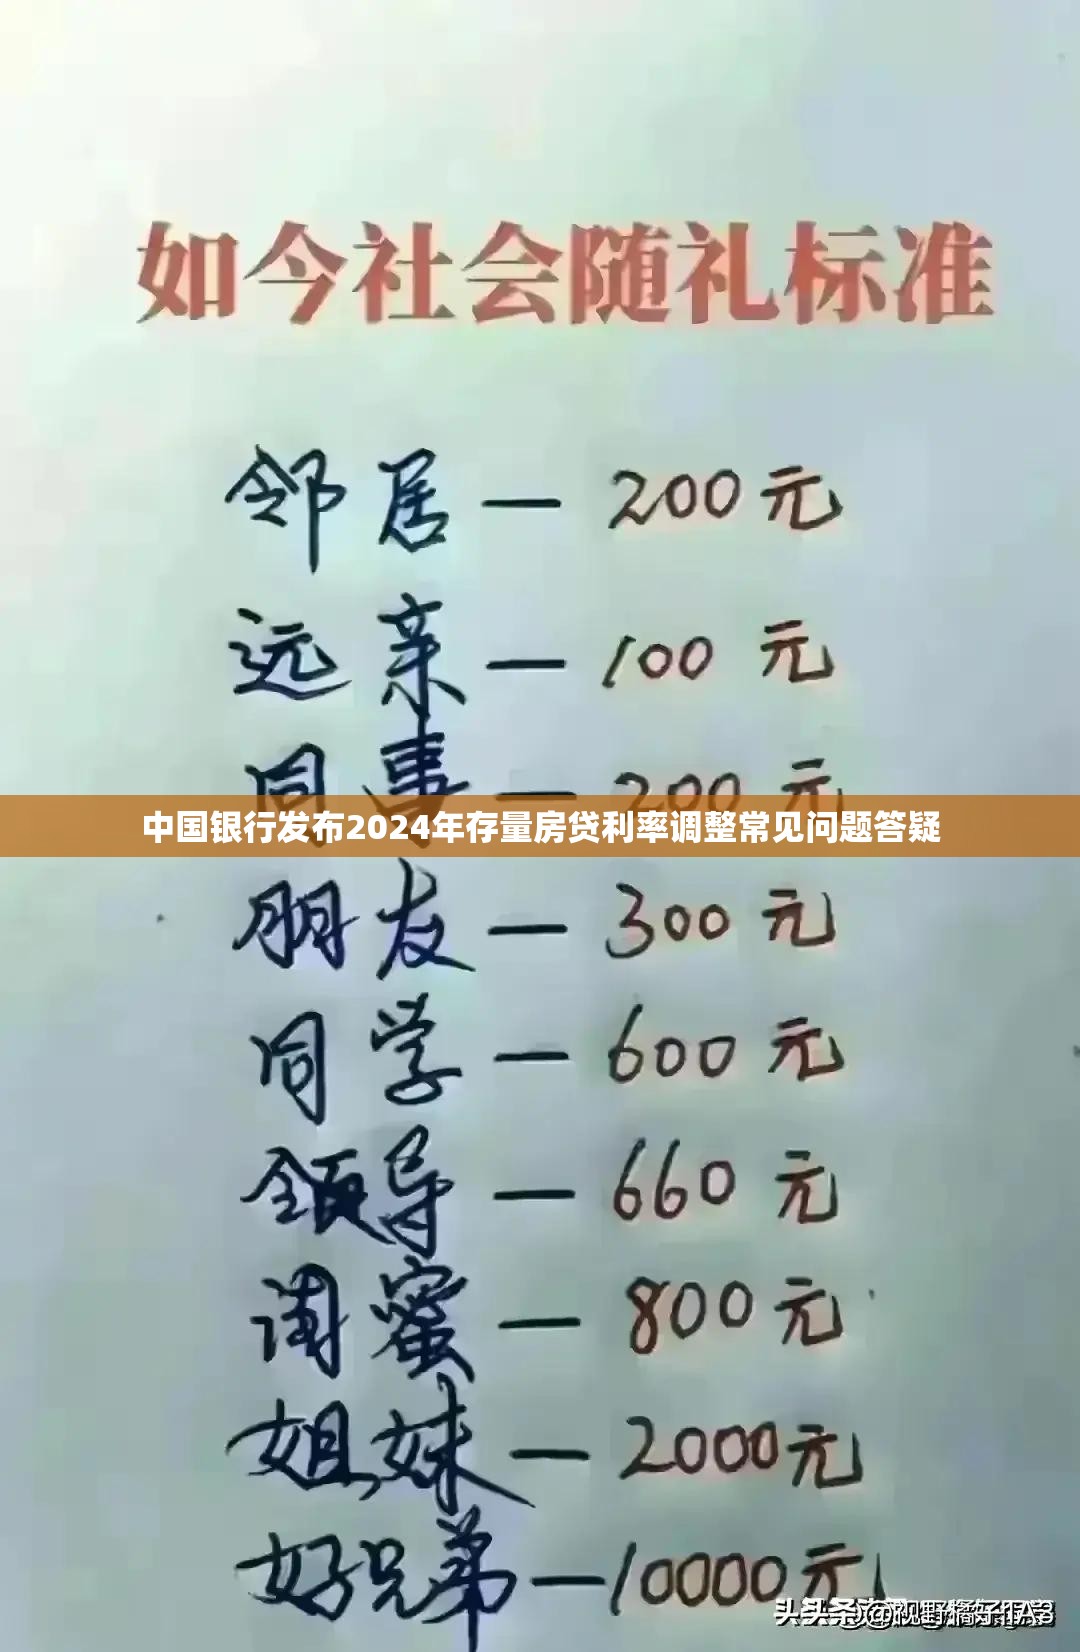 如今社会随礼标准
邻居—200元
远亲—100元
同事—200元
中国银行发布2024年存量房贷利率调整常见问题答疑
朋友—300元
同学—600元
领导—660元
闺蜜—800元
姐妹—2000元
好兄弟—10000元